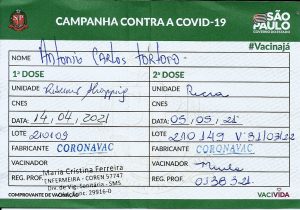 CAMPANHA CONTRA A COVID-19
SÃO PAULO
GOVERNO DO ESTADO
#Vacinajá
NOME Antonio Carlos
1ª DOSE
2ª DOSE
UNIDADE Shopping
UNIDADE
CNES
CNES
DATA 14,04,2021
DATA 05,05,21
LOTE 210109
LOTE 210149
FABRICANTE CORONAVAC
FABRICANTE CORONAVAC
VACINADOR
VACINADOR
Maria Cristina Ferreira
REG. PROF.
ENFERMEIRA - COREN 57747
REG. PROF.
Div. de Vig. Sanitária - SMS
COMPROVANTE DE VACINAÇÃO
VACIVIDA